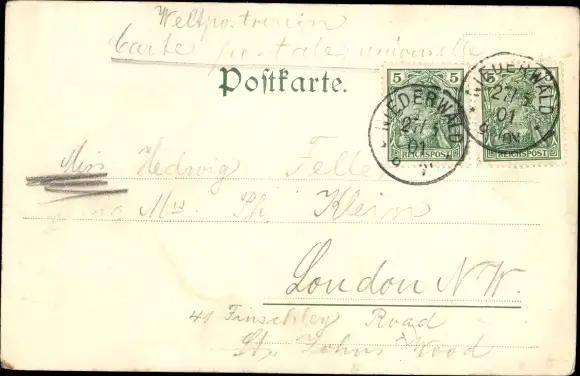 Weltpostverein
Carte postale universelle
Postkarte.
5 5
REICHSPOST
NIEDERWALD
27/5
01
5
REICHSPOST
NIEDERWALD
27/5
01
Miss Hedwig Felle
Mrs. Ph. Klein
London N.W.
41 Finschley Road
St. Johns Wood